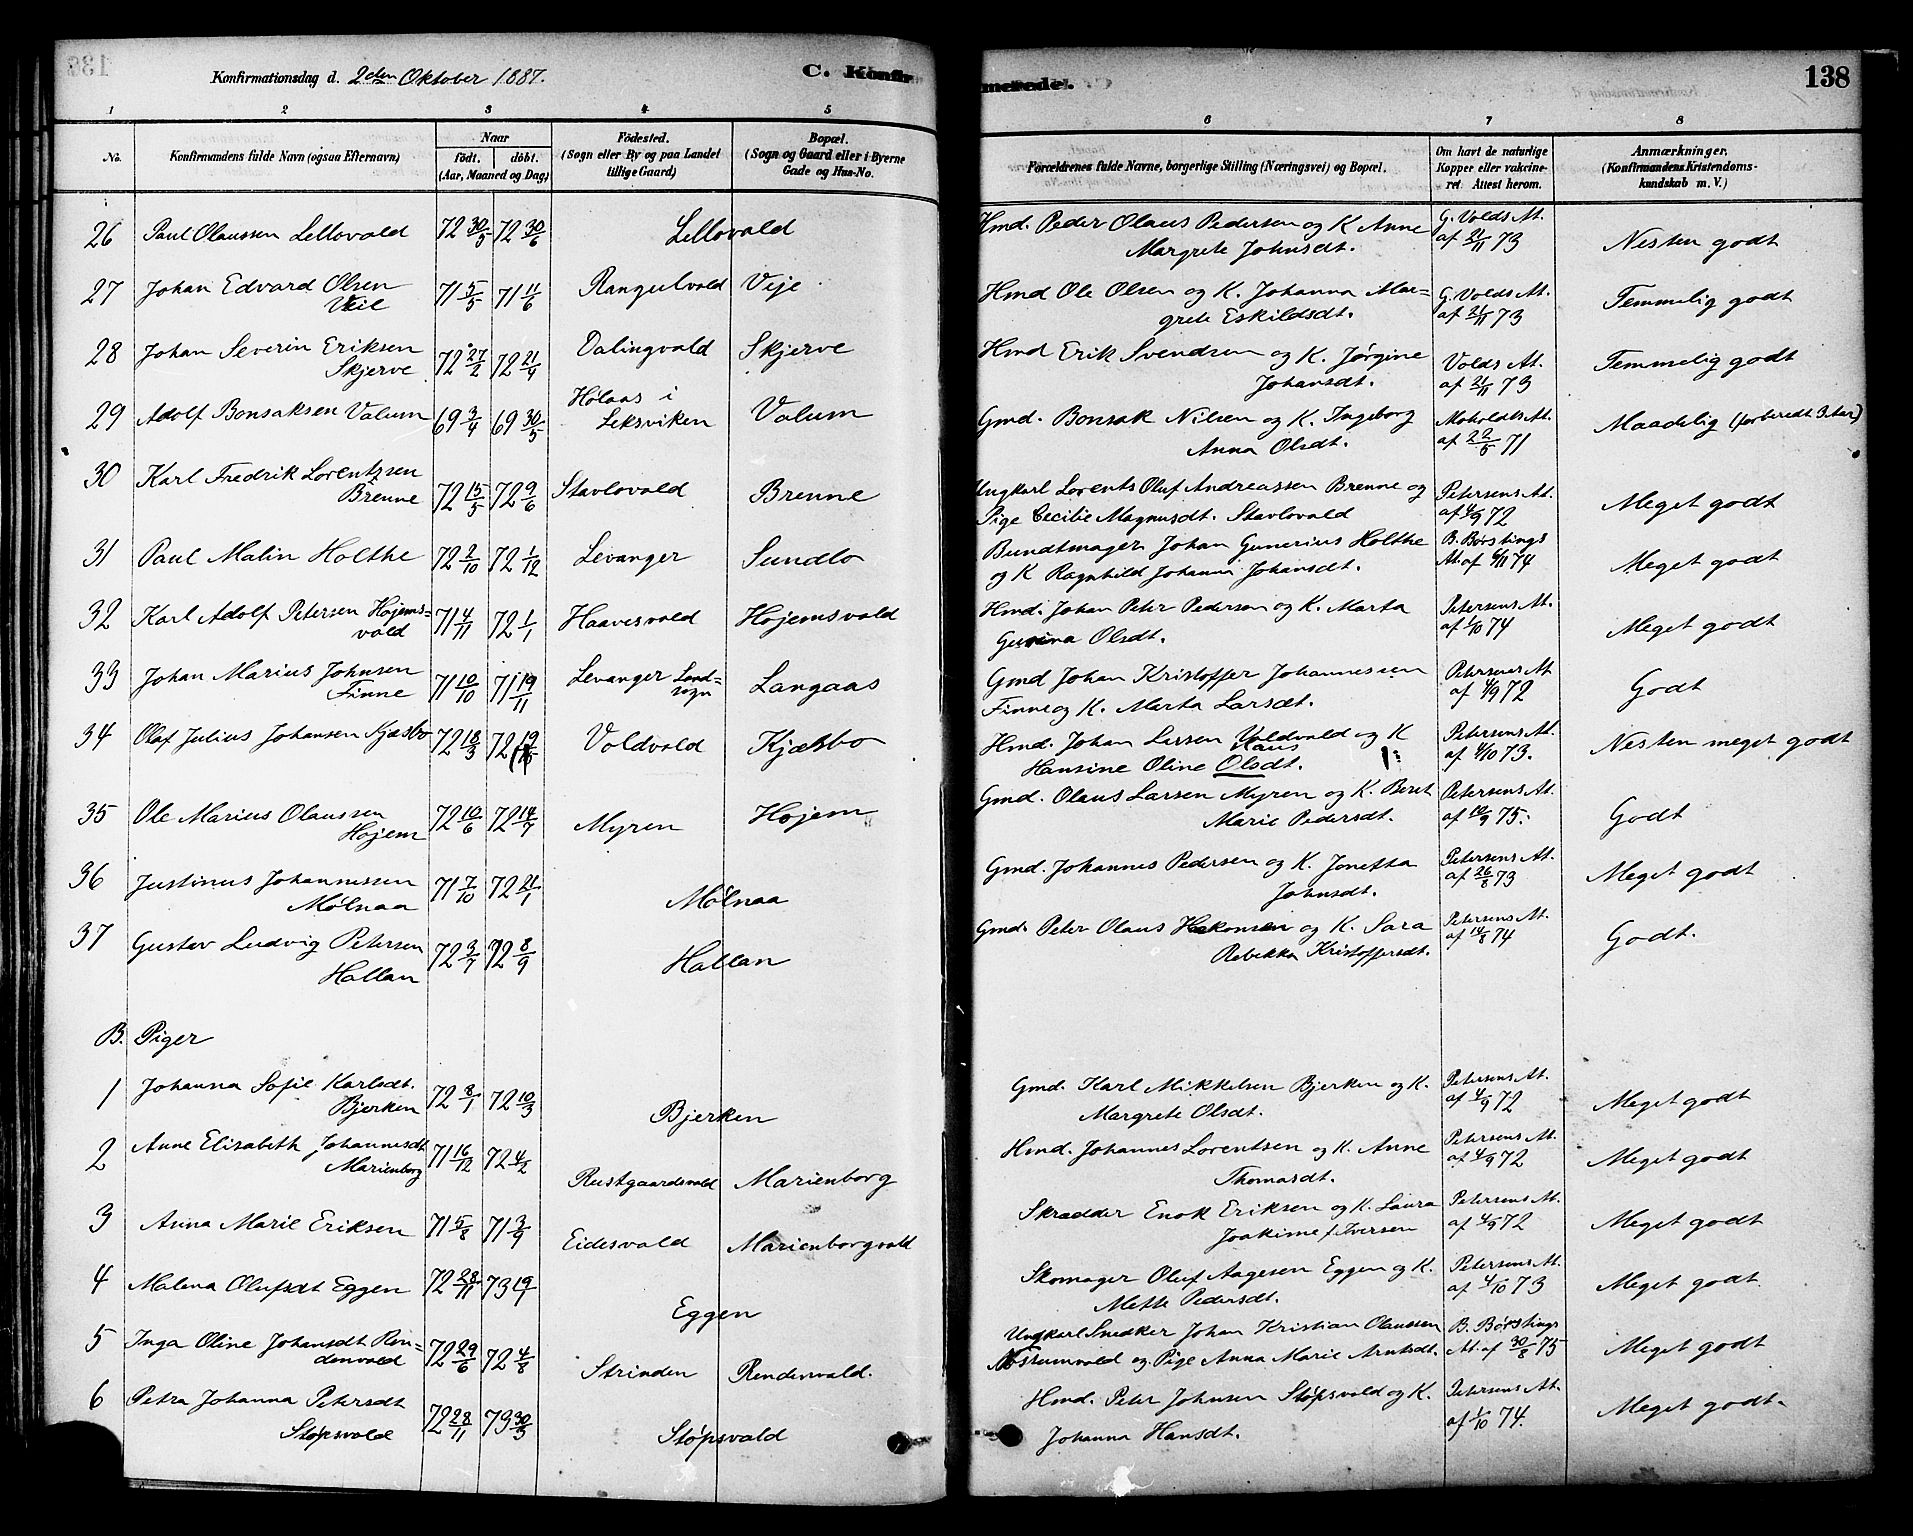 Konfirmationsdag d. 2den Oktober 1887.
C. Konfir
merede.
138
1 2 3 4 5 6 7 8
No.
Konfirmandens fulde Navn (ogsaa Efternavn)
Naar
født. døbt.
(Aar, Maaned og Dag)
Fødested.
(Sogn eller By og paa Landet
tillige Gaard)
Bopæl.
(Sogn og Gaard eller i Byerne
Gade og Hus-No.
Forældrenes fulde Navne, borgerlige Stilling (Næringsvei) og Bopæl.
Om havt de naturlige
Kopper eller vakcine-
ret Attest herom.
Anmærkninger.
(Konfirmandens Kristendoms-
kundskab m. V.)
26 Paul Olaussen Lellovald 72 30/5 72 30/6 Lellovald Hmd. Peder Olaus Pedersen og K. Anne G. Volds At.
Margrete Johnsdt. af 21/11 73 Nesten godt
27 Johan Edvard Olsen 71 5/5 71 11/6 Rangulvald Veje Hmd Ole Olsen og K. Johanna Mar= G. Volds At.
Veie grete Eskildsdt. af 21/11 73 Temmelig godt
28 Johan Severin Eriksen 72 27/2 72 21/4 Dalingvald Skjerve Hmd Erik Svendsen og K. Jørgine Volds At.
Skjerve Johansdt. af 21/11 73 Temmelig godt
29 Adolf Bonsaksen Valum 69 3/4 69 30/5 Hølaas i Valum Gmd. Bonsak Nilsen og K. Ingeborg Moholdts At.
Leksviken Anna Olsdt. af 22/5 71 Maadelig (forberedt 3. Aar)
30 Karl Fredrik Lorentzsen
Brenne 72 15/5 72 9/6 Stavlovald Brenne Ungkarl Lorents Oluf Andreassen Brenne og Petersens At. Meget godt
Pige Cecilie Magnusdt. Stavlovald af 4/9 72
31 Paul Malin Holthe 72 2/10 72 1/12 Levanger Sundlo Bundtmager Johan Gunerius Holthe B. Børstings
og K Ragnhild Johanna Johansdt. At. af 6/11 74 Meget godt
32 Karl Adolf Petersen Højems- 71 4/11 72 1/1 Haavesvald Højemsvald Hmd. Johan Peter Pedersen og K. Marta Petersens At.
vald Gurina Olsdt. af 1/10 74 Meget godt
33 Johan Marius Johnsen 71 10/10 71 19/11 Levanger Land= Langaas Gmd Johan Kristoffer Johannessen Petersens At
Finne sogn Finne og K. Marta Larsdt. af 4/9 72 Godt
34 Olaf Julius Johansen Kjæsbo 72 18/3 72 19/5 Voldvald Kjælsbo Hmd. Johan Larsen Voldvald og K Petersens At.
Hansine Oline Olsdt. af 4/10 73. Nesten meget godt
Hans
35 Ole Marius Olaussen 72 10/6 72 14/7 Myren Højem Gmd. Olaus Larsen Myren og K. Beret Petersens At.
Højem Marie Pedersdt. af 10/9 75. Godt
36 Justinus Johannessen 71 7/10 72 21/1 Mølnaa Gmd. Johannes Pedersen og K. Jonetta Petersens At.
Mølnaa Johnsdt. af 26/8 73 Meget godt
37 Gustav Ludvig Petersen 72 3/7 72 8/9 Hallan Gmd. Peter Olaus Hakonsen og K. Sara Petersens At.
Hallan Rebekka Kristoffersdt. af 14/8 74 Godt.
B. Piger
1 Johanna Sofie Karlsdt. 72 8/1 72 10/3 Bjerken Gmd. Karl Mikkelsen Bjerken og K. Petersens At.
Bjerken Margrete Olsdt. af 4/9 72 Meget godt
2 Anne Elisabeth Johannesdt 71 16/12 72 4/2 Rustgaardsvald Marienborg Hmd. Johannes Lorentsen og K. Anne Petersens At.
Marienborg Thomasdt. af 4/9 72 Meget godt
3 Anna Marie Eriksen 71 5/8 71 3/9 Eidesvald Marienborgvald Skrædder Enok Eriksen og K. Laura Petersens At.
Joakime f. Iversen af 4/9 72 Meget godt
4 Malena Olufsdt Eggen 72 28/11 73 19/1 Eggen Skomager Oluf Aagesen Eggen og K. Petersens At.
Mette Pedersdt. af 4/10 73 Meget godt.
5 Inga Oline Johansdt Ren= 72 29/6 72 4/8 Strinden Rendenvald. Ungkarl Snedker Johan Kristian Olaussen B. Børstings
denvald og Pige Anna Marie Arntsdt. At. af 30/8 75 Meget godt
6 Petra Johanna Petersdt 72 28/11 73 30/3 Støpsvald Hmd. Peter Johnsen Støpsvald og K. Petersens At.
Støpsvald Johanna Hansdt. af 1/10 74. Meget godt.